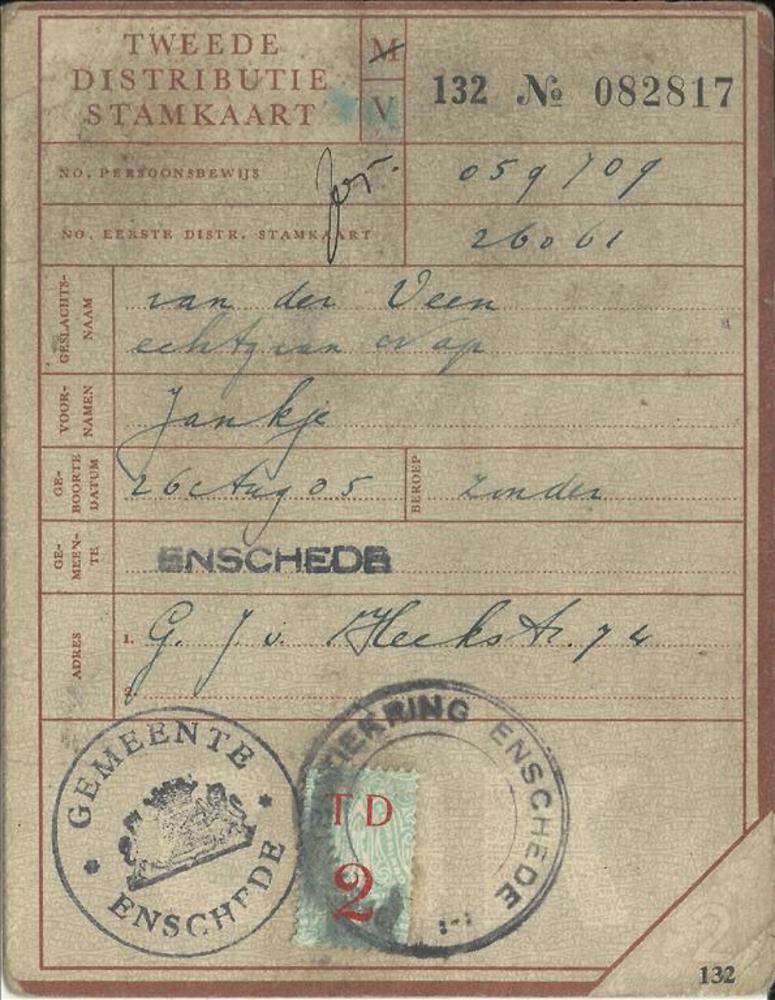 TWEEDE
DISTRIBUTIE
STAMKAART
M
V
132 No 082817
NO. PERSOONSBEWIJS
059709
NO. EERSTE DISTR. STAMKAART
26061
GESLACHTS-
NAAM
van der Veen
echtgen v Nap
VOOR-
NAMEN
Jankje
GE-
BOORTE
DATUM
26 Aug 05
BEROEP
zonder
GE-
MEEN-
TE
ENSCHEDE
ADRES
1. G. J. v. Heekstr. 74
2.
GEMEENTE
ENSCHEDE
KRING ENSCHEDE
TD
2
132